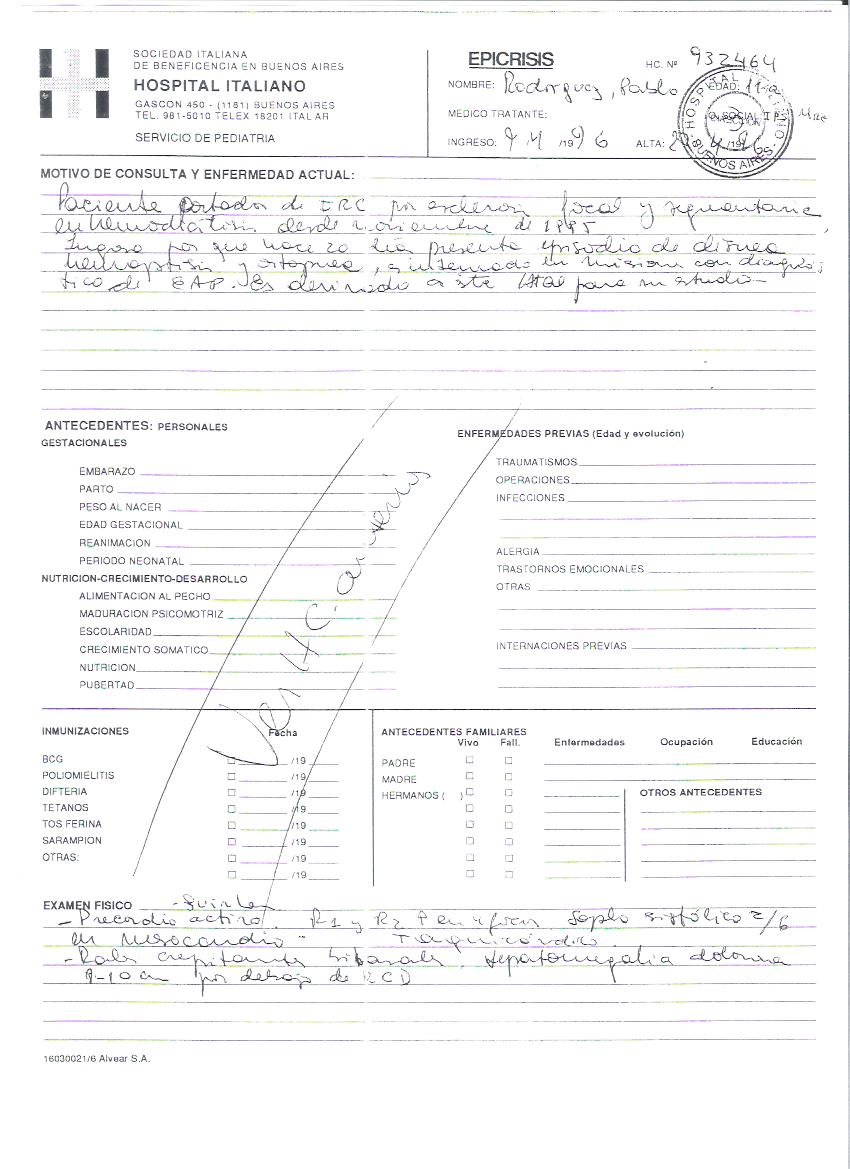 SOCIEDAD ITALIANA
DE BENEFICENCIA EN BUENOS AIRES
HOSPITAL ITALIANO
GASCON 450 - (1181) BUENOS AIRES
TEL. 981-5010 TELEX 18201 ITAL AR
SERVICIO DE PEDIATRIA
EPICRISIS
HC. Nº 932464
NOMBRE: Rodriguez, Pablo EDAD: 11a
MEDICO TRATANTE:
INGRESO: 9 4 /19 96 ALTA: /19 96
HOSPITAL ITALIANO
BUENOS AIRES
MOTIVO DE CONSULTA Y ENFERMEDAD ACTUAL:
Paciente portador de IRC por esclerosis focal y segmentaria
en hemodialisis desde noviembre de 1995
Ingresa por que hace 20 dias presenta episodio de disnea
hemoptisis y ortopnea, es internado en Misiones con diagnós
tico de EAP. Es derivado a este Htal para su estudio-
ANTECEDENTES: PERSONALES
GESTACIONALES
EMBARAZO
PARTO
PESO AL NACER
EDAD GESTACIONAL
REANIMACION
PERIODO NEONATAL
NUTRICION-CRECIMIENTO-DESARROLLO
ALIMENTACION AL PECHO
MADURACION PSICOMOTRIZ
ESCOLARIDAD
CRECIMIENTO SOMATICO
NUTRICION
PUBERTAD
Ver HC anteriores
ENFERMEDADES PREVIAS (Edad y evolución)
TRAUMATISMOS
OPERACIONES
INFECCIONES
ALERGIA
TRASTORNOS EMOCIONALES
OTRAS
INTERNACIONES PREVIAS
INMUNIZACIONES Fecha
BCG /19
POLIOMIELITIS /19
DIFTERIA /19
TETANOS /19
TOS FERINA /19
SARAMPION /19
OTRAS: /19
/19
ANTECEDENTES FAMILIARES
Vivo Fall. Enfermedades Ocupación Educación
PADRE
MADRE
HERMANOS ( )
OTROS ANTECEDENTES
EXAMEN FISICO
- Precordio activo R1 y R2 4 focos Soplo sistólico 2/6
en mesocardio - Taquicárdico.
- Rales crepitantes bibasales. Hepatomegalia dolorosa
9-10 cm por debajo de RCD
16030021/6 Alvear S.A.